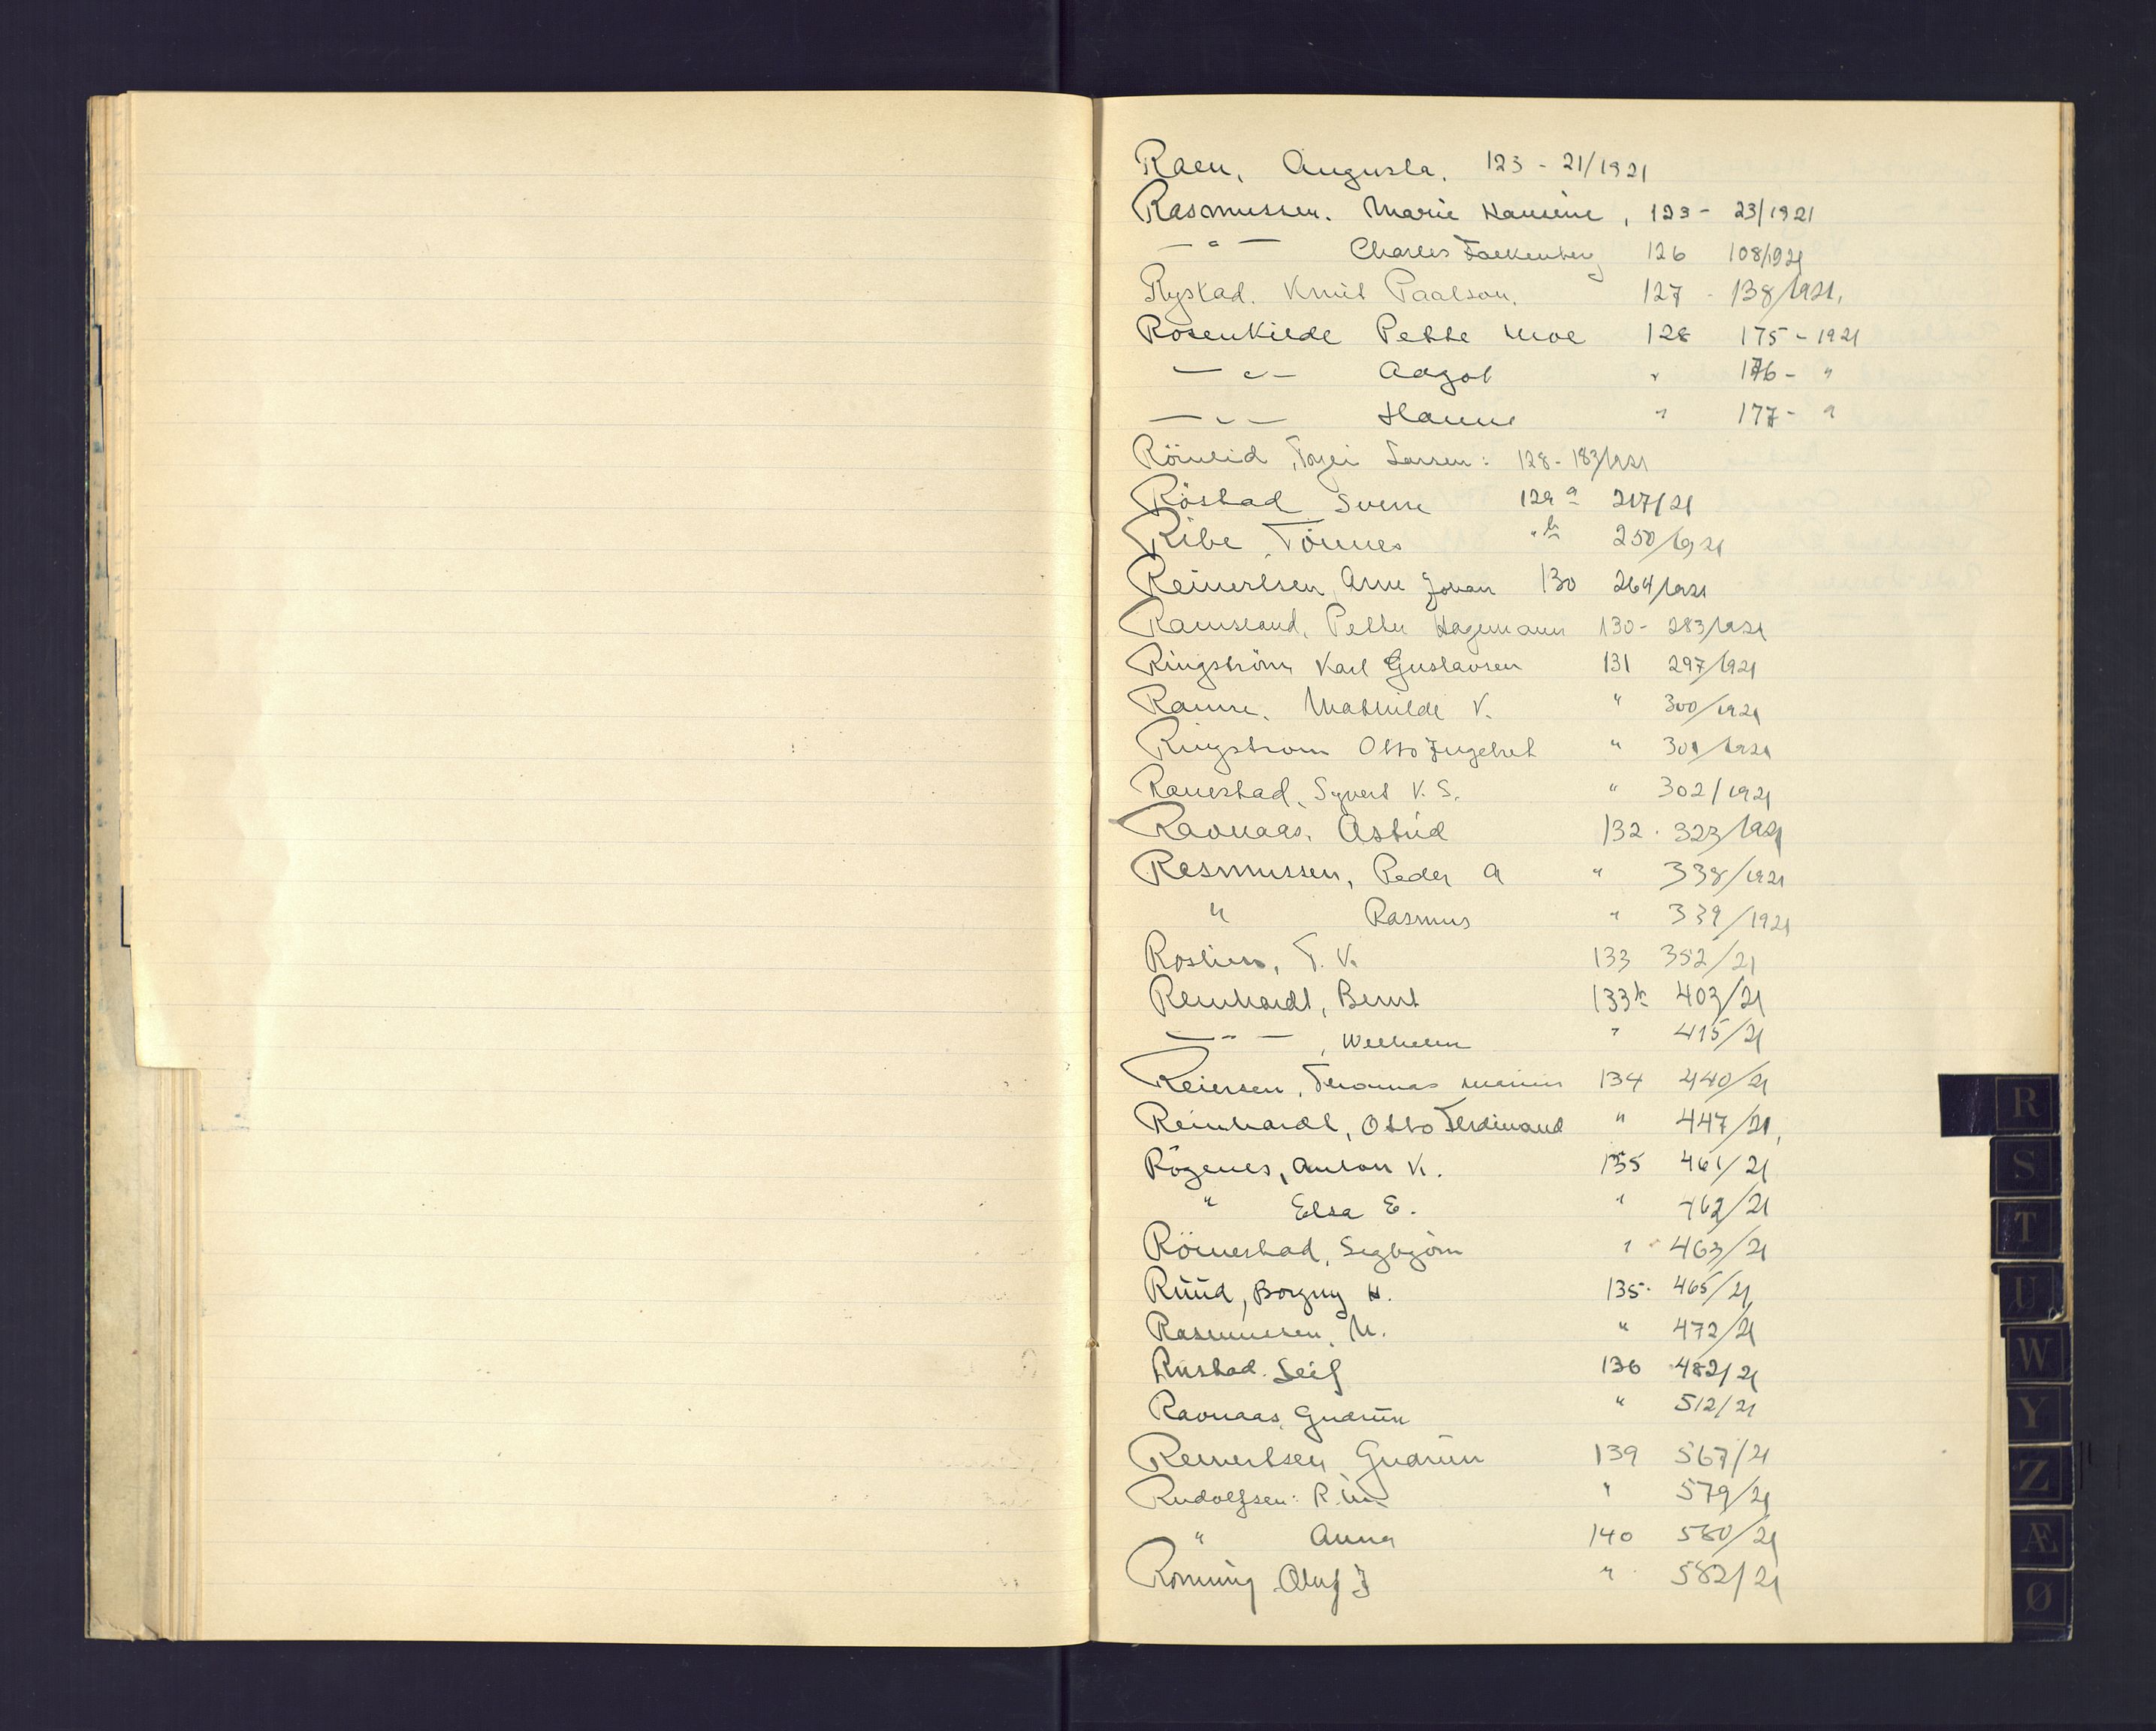 Raen, Augusta. 123 - 21/1921
Rasmussen. Marie Hansine, 123 - 23/1921
— " — Charles Falkenberg 126 108/1921
Rystad. Knut Paalson. 127 - 138/1921.
Rosenkilde Pette Moe 128 175 - 1921
— " — Aagot " 176 - "
— " — Hanne " 177 - "
Römlid, Larsen: 128 - 183/1921
Röstad Sverre 129 a 217/21
Ribe, Tönnes " b 250/1921
Reinertsen, Arne Johan 130 264/1921
Ramsland, Petter Hagemann 130 - 283/1921
Ringström Karl Gustavsen 131 297/1921
Ramse. Mathilde V. " 300/1921
Ringstrom Otto Ingebret " 301/1921
Ranestad, Syvert K. S. " 302/1921
Ravnaas, Astrid 132 . 323/1921
Rasmussen, Peder A " 338/1921
" Rasmus " 339/1921
T. K. 133 352/21
Reinhardt, Bernt 133 b 403/21
— " — , Wilhelm " 415/21
Reiersen, Thomas 134 440/21
Reinhardt, Otto Ferdinand " 447/21,
Rögenes, Anton K. 135 461/21
" Elsa E. " 462/21
Römestad, Sigbjörn " 463/21
Ruud, Borgny H. 135 . 465/21
Rasmussen, M. " 472/21
Rustad. Leif 136 482/21
Ravnaas, Gudrun " 512/21
Reinertsen Gudrun 139 567/21
Rudolfsen: R. M. " 579/21
" Anna 140 580/21
Ronning Oluf J " 582/21
R
S
T
U
W
Y
Z
Æ
Ø